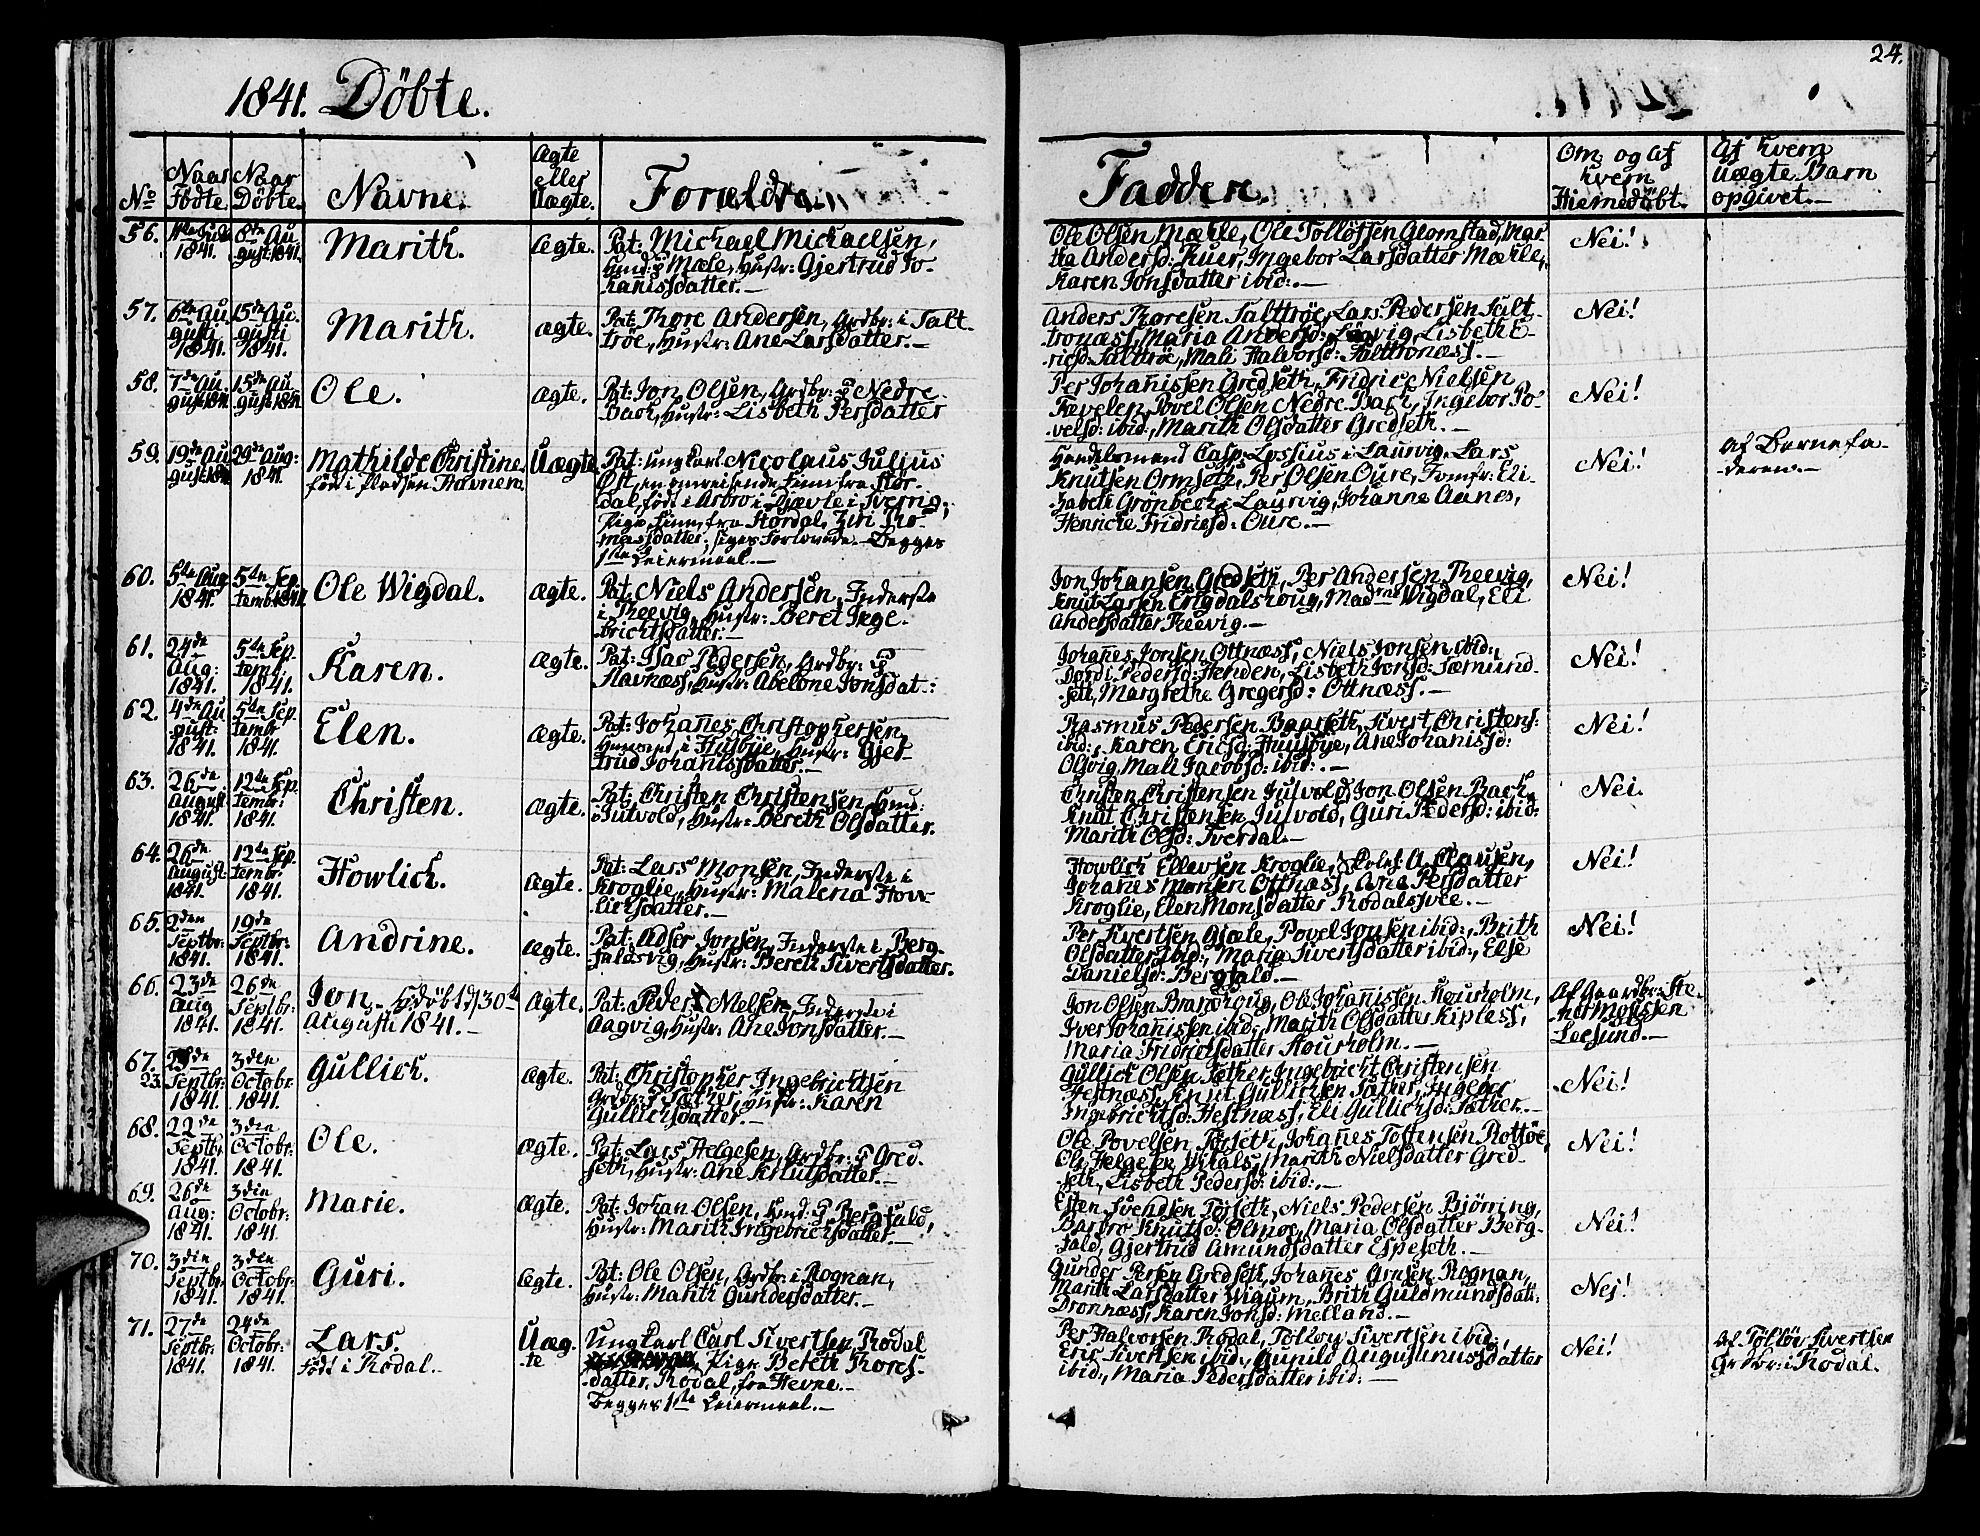 24.
1841. Döbte.
No
Naar Födte.
Naar Döbte.
Navne.
Ægte eller Uægte.
Forældre.
Faddere.
Om og af hvem Hiemedöbt.
Af hvem Uægte Barn opgivet.
56.
1841.
8de August 1841.
Marith.
Ægte.
Pat: Michael Michaelsen,
Mæle, Hustr: Gjertrud Jo-
hanisdatter.
Ole Olsen Mæhle, Ole Tollöfsen Glomstad, Mar-
tha Andersd: Kuer, Ingebor Larsdatter Mæhle,
Karen Jonsdatter ibid:
Nei!
57.
6te Augusti 1841.
15de Augusti 1841.
Marith.
Ægte.
Pat: Thore Andersen, Grdbr: i Salt-
tröe, Hustr: Ane Larsdatter.
Anders Thoresen Salttröe, Lars Pedersen Salt-
tronæss, Maria Andersd: Lisbeth E-
ricsd: Salttröe, Mali Halvorsd: Salttronæss.
Nei!
58.
7de August 1841.
15de August 1841.
Ole.
Ægte.
Pat: Jon Olsen, Grdbr: p Nedre-
Bach, Hustr: Lisbeth Persdatter
Per Johanissen Gredseth, Fridric Nielsen
Povel Olsen Nedre Bach, Ingebor Po-
velsd: ibid:, Marith Olsdatter Gredseth.
Nei!
59.
19de August 1841.
29de Aug: 1841.
Mathilde Christine.
föd i Pladsen Stavnem
Uægte
Pat: Ungkarl Nicolaus Julius
Öst, en omreisende Finn fra Stör-
dal, född i Arbro i Gjævle i Sverrig;
Pige, Finn, fra Stördal, Ziri Tho-
masdatter. siges Forlovede. Begges
1ste Leiermaal.
Handelsmand Casp: Lossius i Laurvig, Lars
Knutsen Ormseth, Per Olsen Oure, Jomfr: Eli-
sabeth Grönbech i Laurvig, Johanne Aunes,
Henricke Fridricsd: Oure.
Nei!
af Barnefa-
deren.
60.
5te Aug. 1841.
5te Septemb: 1841.
Ole Wigdal.
Ægte.
Pat: Niels Andersen, Inderste
i Theevig, Hustr: Beret Inge-
brichtsdatter.
Jon Johansen Gredseth, Per Andersen Theevig,
Knut Larsen Engdalshoug, Madme Wigdal, Eli
Andersdatter Theevig.
Nei!
61.
24de Aug: 1841.
5te Septemb: 1841.
Karen.
Ægte.
Pat: Isac Pedersen, Grdbr: p
Stavnæss, Hustr: Abelone Jonsdat:
Johanes Jonsen Ottnæss, Niels Jonsen ibid:,
Dordi Pedersd: Henden, Lisbeth Jonsd: Sæmund-
seth, Margrethe Gregersd: Ottnæss.
Nei!
62.
4de August: 1841.
5te Septembr 1841.
Elen.
Ægte.
Pat: Johanes Christophersen,
Huusmd i Husbye, Hustr: Gjer-
trud Johanisdatter.
Rasmus Pedersen Baarseth, Sivert Christens:
ibid:, Karen Ericsd: Huusbye, Ane Johanisd:
Olsvig, Mali Jacobsd: ibid:
Nei!
63.
26de August 1841.
12te Septembr: 1841.
Christen.
Ægte.
Pat: Christen Christensen Hmd:
i Julvold, Hustr: Bereth Olsdatter.
Christen Christensen Julvold, Jon Olsen Bach,
Knut Christensen Julvold, Guri Pedersd: ibid:
Marith Olsd: Sverdal.
Nei.
64.
26de August 1841.
12te Septembr: 1841.
Howlich.
Ægte.
Pat: Lars Monsen, Inderste i
Kroglie, Hustr: Malena How-
lichsdatter.
Howlich Ellevsen Kroglie, Skolel: A. Clausen,
Johanes Monsen Ottnæss, Ane Persdatter
Kroglie, Elen Monsdatter Rodalssvee.
Nei!
65.
2den Septbr: 1841.
19de Septbr: 1841.
Andrine.
Ægte.
Pat: Adser Jonsen, Inderste i Berg-
faldsvig, Hustr: Bereth Sivertsdatter.
Per Sivertsen Gjæle, Povel Jonsen ibid:, Brith
Olsdatter ibid:, Maria Sivertsdatter ibid:, Else
Danielsd: Bergfald.
Nei!
66.
23de Aug 1841.
26de Septbr: 1841.
Jon. Hdöbt d: 30te
Augusti 1841.
Ægte.
Pat: Peder Nielsen, Inderste i
Aagvig, Hustr: Ane Jonsdatter.
Jon Olsen Brandhoug, Ole Johanissen Skouholm,
Iver Johanissen ibid:, Marith Olsdatter Kipless,
Maria Fridrichsdatter Skourholm.
Af Gaardbr: Ste-
ner Monssen
Leesund.
67.
23
Septbr: 1841.
3den Octobr: 1841.
Gullich.
Ægte.
Pat: Christopher Ingebrichtsen
Grdbr: p Sæther, Hustr: Karen
Gullichsdatter.
Gullich Olsen Sæther, Ingebricht Christensen
Hestnæss, Knut Gullichsen Sæther, Ingebor
Ingebrichtsd: Hestnæss, Eli Gullichsd: Sæther.
Nei!
68.
22de Septbr 1841.
3die Octobr: 1841.
Ole.
Ægte.
Pat: Lars Helgesen, Grdbr: p Gred-
seth, Hustr: Ane Knutsdatter.
Ole Povelsen Törseth, Johanes Tostensen Rottöe,
Ole Helgesen Vitals, Marith Nielsdatter Gred-
seth, Lisbeth Pedersd: ibid:
Nei!
69.
26de Aug: 1841.
3die Octobr: 1841.
Marie.
Ægte.
Pat: Johan Olsen, Hmd: p Bergfald,
Hustr: Marith Ingebrichtsdatter.
Esten Svendsen Törseth, Niels Pedersen Björring,
Barbro Knutsd: Olmoe, Maria Olsdatter Berg-
fald, Gjertrud Amundsdatter Espeseth.
Nei!
70.
3die Septbr 1841.
3die Octobr: 1841.
Guri.
Ægte.
Pat: Ole Olsen, Grdbr: i Rognan,
Hustr: Marith Gundersdatter.
Gunder Persen Gredseth, Johanes Arnsen Rognan,
Marith Larsdatter Wigum, Brith Guldmundsdat:
Dronnæss, Karen Jonsd: Melland.
Nej!
71.
27de Septbr: 1841.
24de Octobr: 1841.
Lars.
Född i Rodal.
Uæg-
te
Ungkarl Carl Sivertsen Rodal
Pige Bereth Thores-
datter, Rodal, fra Hevne.
Begges 1ste Leiermaal.
Per Halvorsen Rodal, Tollöv Sivertsen ibid:,
Eric Sivertsen ibid:, Gunild Augustinusdatter
ibid:, Maria Pedersdatter ibid:
Nei!
Af Tollöv Sivertsen
Grdbr: i Rodal.